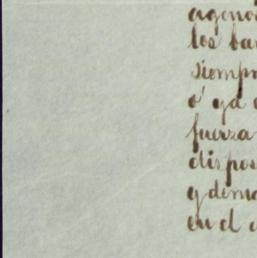 agenos
los ba
siemp
o' ya
fuerza
dispos
y dema
en el